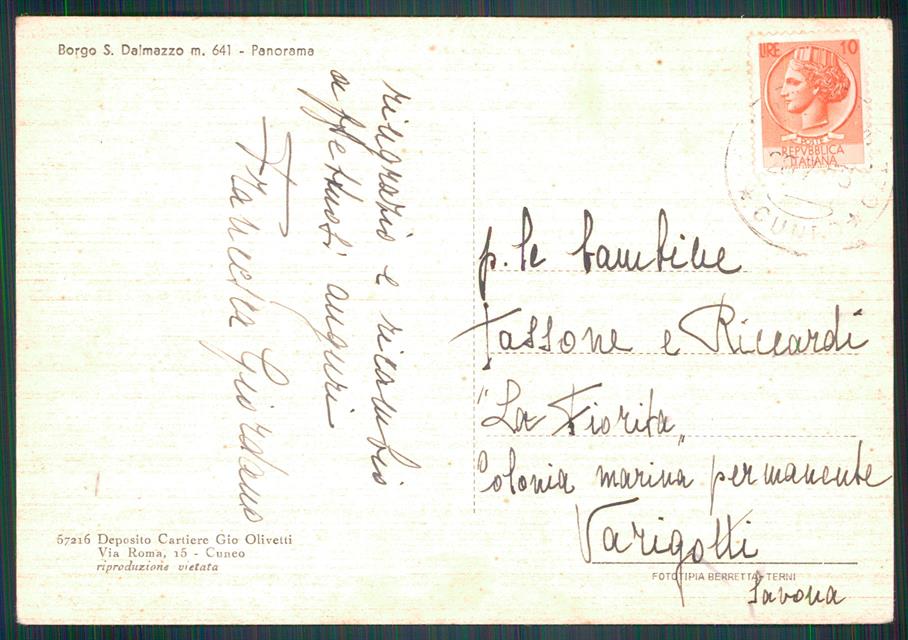 Borgo S. Dalmazzo m. 641 - Panorama
ringrazio e ricambio
affettuosi auguri
Franchka Giordano
57216 Deposito Cartiere Gio Olivetti
Via Roma, 15 - Cuneo
riproduzione vietata
LIRE 10
POSTE
REPVBBLICA
ITALIANA
CUNEO
p. le bambine
Tassone e Riccardi
"La Fiorita"
Colonia marina permanente
Varigotti
FOTOTIPIA BERRETTA - TERNI
Savona